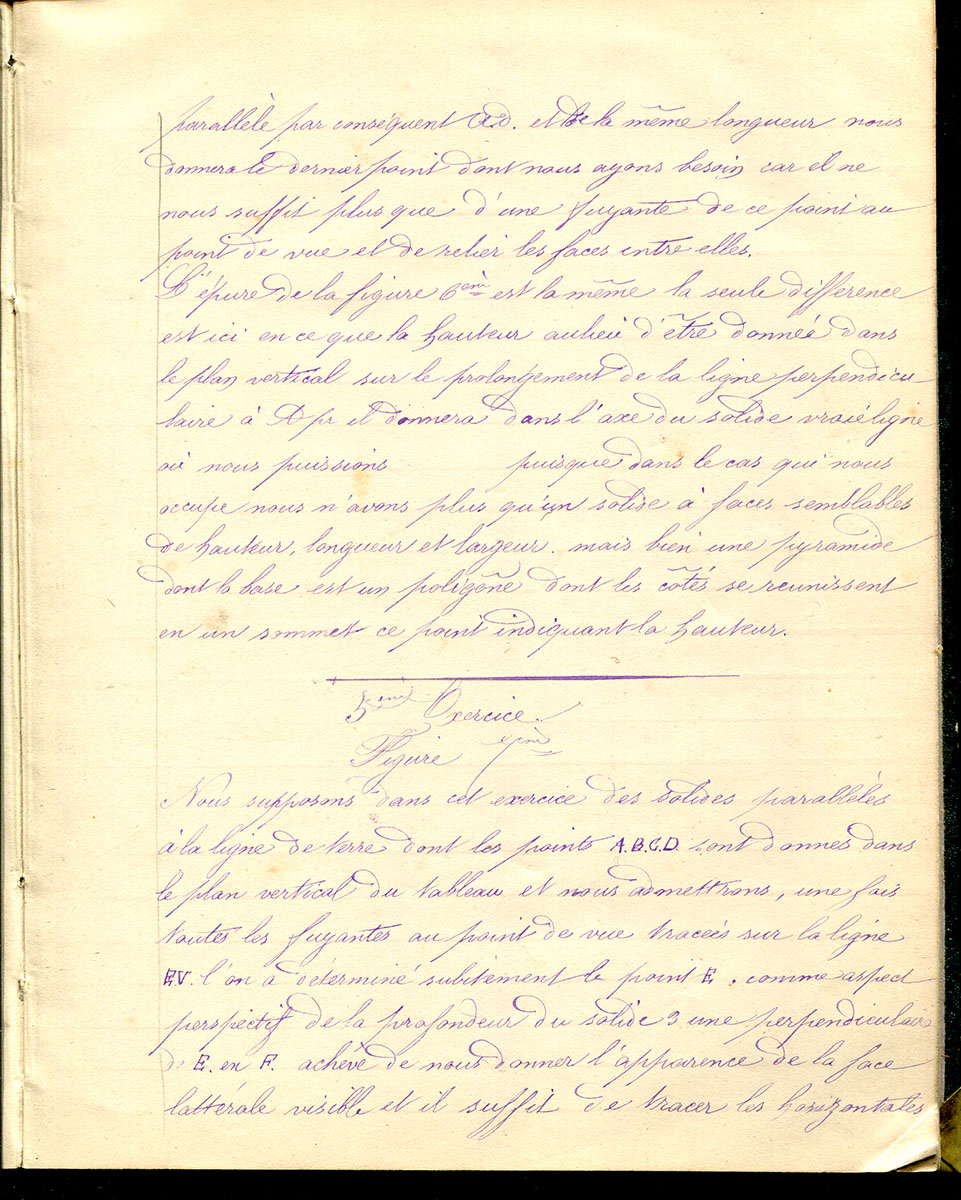 parallèlè par conséquent A.D. et de la même longueur nous
donnera le dernier point dont nous ayons besoin car il ne
nous suffit plus que d'une fuyante de ce point au
point de vue et de relier les faces entre elles.
L'épure de la figure 6emè est la même la seule difference
est ici en ce que la hauteur aulieu d'être donneé dans
le plan vertical sur le prolongement de la ligne perpendicu-
laire à A pr il donnera dans l'axe du solide vraie ligne
où nous puissions puisque dans le cas qui nous
occupe nous n'avons plus qu'un solide à faces semblables
de hauteur, longueur et largeur. mais bien une pyramide
dont la base est un poligône dont les côtés se reunissent
en un sommet ce point indiquant la hauteur.
5emè Exercice.
Figure
Nous supposons dans cet exercice des solides parallélés
à la ligne de terre dont les points A.B.C.D. sont donnés dans
le plan vertical du tableau et nous admettrons, une fois
toutes les fuyantes au point de vue traceés sur la ligne
EV. l'on à déterminé subitement le point E. comme aspect
perspectif de la profondeur du solide 3 une perpendiculaire
de E. en F. achève de nous donner l'apparence de la face
lattérale visible et il suffit de tracer les horizontales